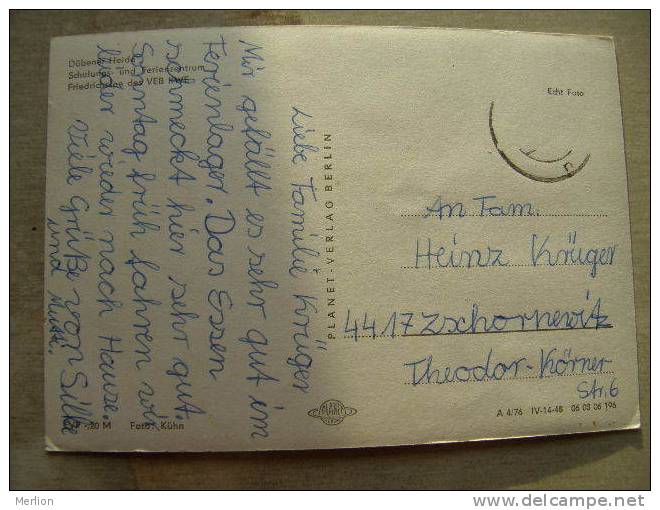 Dübener Heide
Schulungs- und Ferienzentrum
Friedrichsee des VEB KWE
Liebe Familie Krüger
Mir gefällt es sehr gut im
Ferienlager. Das Essen
schmeckt hier sehr gut.
Sonntag früh fahren wir
leider wieder nach Hause.
Viele Grüße von Silke
und Mutti.
20 M Foto: Kühn
PLANET-VERLAG BERLIN
PLANET
Echt Foto
An Fam.
Heinz Krüger
4417 Zschornewitz
Theodor-Körner
Str. 6
A 4/76 IV-14-48 06 03 06 196
Merlion
www.delcampe.net